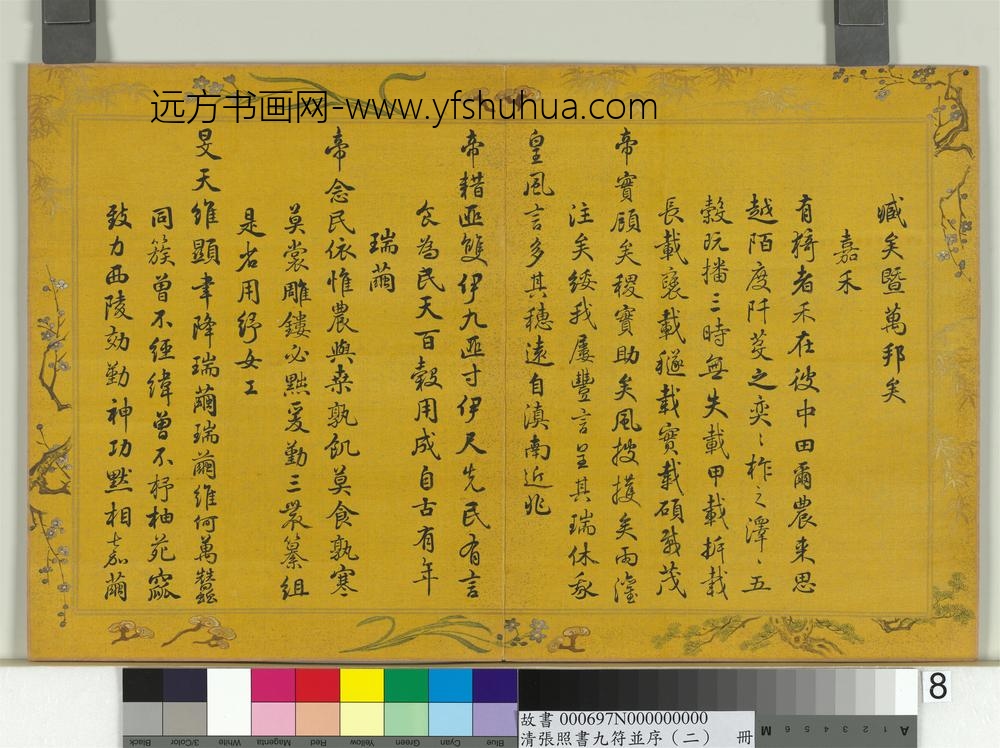 远方书画网-www.yfshuhua.com
臧矣暨萬邦矣
嘉禾
有猗者禾在彼中田爾農來思
越陌度阡芟之奕〻柞之澤〻五
穀既播三時無失載甲載拆載
長載襃載穟載實載碩載茂
帝實頋矣稷實助矣風搜擭矣雨溼
注矣綏我屢豐言呈其瑞休哉
皇風言多其穗遠自滇南近兆
帝耤匪雙伊九匪寸伊尺先民有言
食為民天百穀用成自古有年
瑞繭
帝念民依惟農與桑孰飢莫食孰寒
莫裳雕鏤必黜爰勤三裳纂組
是省用紓女工
旻天維顯聿降瑞繭瑞繭維何萬蠶
同簇曾不經緯曾不杼柚苑窳
致力西陵効勤神功默相嘉繭
8
故書 000697N000000000
清張照書九符並序（二） 冊
Black
3/Color
White
Magenta
Red
Yellow
Green
Cyan
Blue
A 1 2 3 4 5 6 M